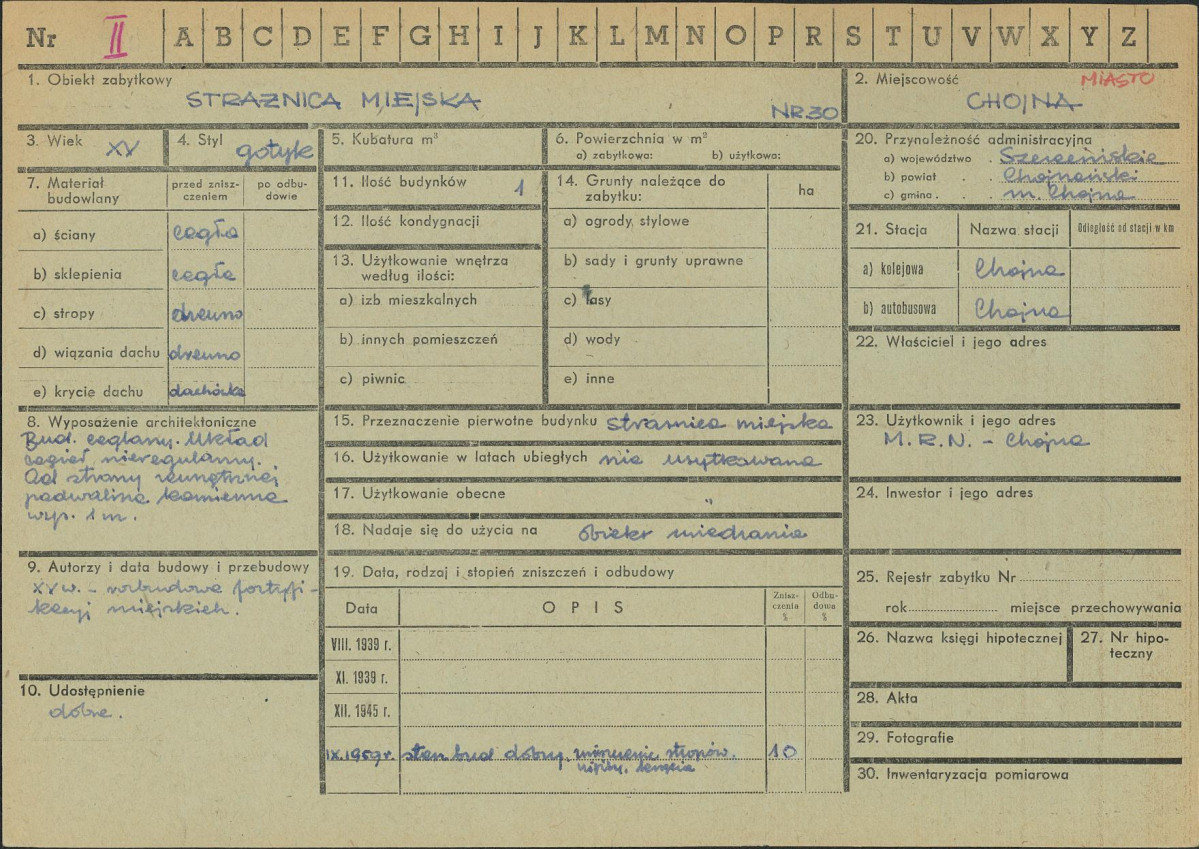 Nr II A B C D E F G H I J K L M N O P R S T U V W X Y Z
1. Obiekt zabytkowy
STRAŻNICA MIEJSKA
NR.30
2. Miejscowość MIASTO
CHOJNA
3. Wiek XV
4. Styl gotyk
5. Kubatura m³
6. Powierzchnia w m²
a) zabytkowa: b) użytkowa:
20. Przynależność administracyjna
a) województwo . Szczecińskie
b) powiat . . Chojnański
c) gmina . . m. Chojna
7. Materiał budowlany
przed znisz-
czeniem
po odbu-
dowie
a) ściany cegła
b) sklepienia cegła
c) stropy drewno
d) wiązania dachu drewno
e) krycie dachu dachówka
11. Ilość budynków 1
12. Ilość kondygnacji
13. Użytkowanie wnętrza
według ilości:
a) izb mieszkalnych
b) innych pomieszczeń
c) piwnic
14. Grunty należące do
zabytku:
ha
a) ogrody stylowe
b) sady i grunty uprawne
c) lasy
d) wody
e) inne
21. Stacja Nazwa stacji Odległość od stacji w km
a) kolejowa Chojna
b) autobusowa Chojna
22. Właściciel i jego adres
8. Wyposażenie architektoniczne
Bud. ceglany. Układ
cegieł nieregularny.
Od strony zewnętrznej
podwalina kamienna
wys. 1 m.
15. Przeznaczenie pierwotne budynku strażnica miejska
16. Użytkowanie w latach ubiegłych nie użytkowana
17. Użytkowanie obecne "
18. Nadaje się do użycia na obiekt zwiedzania
23. Użytkownik i jego adres
M.R.N. - Chojna
24. Inwestor i jego adres
9. Autorzy i data budowy i przebudowy
XV w. - rozbudowa fortyfi-
kacyj miejskich.
10. Udostępnienie
dobre.
19. Data, rodzaj i stopień zniszczeń i odbudowy
Data OPIS
Znisz-
czenia
%
Odbu-
dowa
%
VIII. 1939 r.
XI. 1939 r.
XII. 1945 r.
IX.1959r. stan bud dobry, zniszczenie stropów, 10
25. Rejestr zabytku Nr
rok miejsce przechowywania
26. Nazwa księgi hipotecznej
27. Nr hipo-
teczny
28. Akta
29. Fotografie
30. Inwentaryzacja pomiarowa